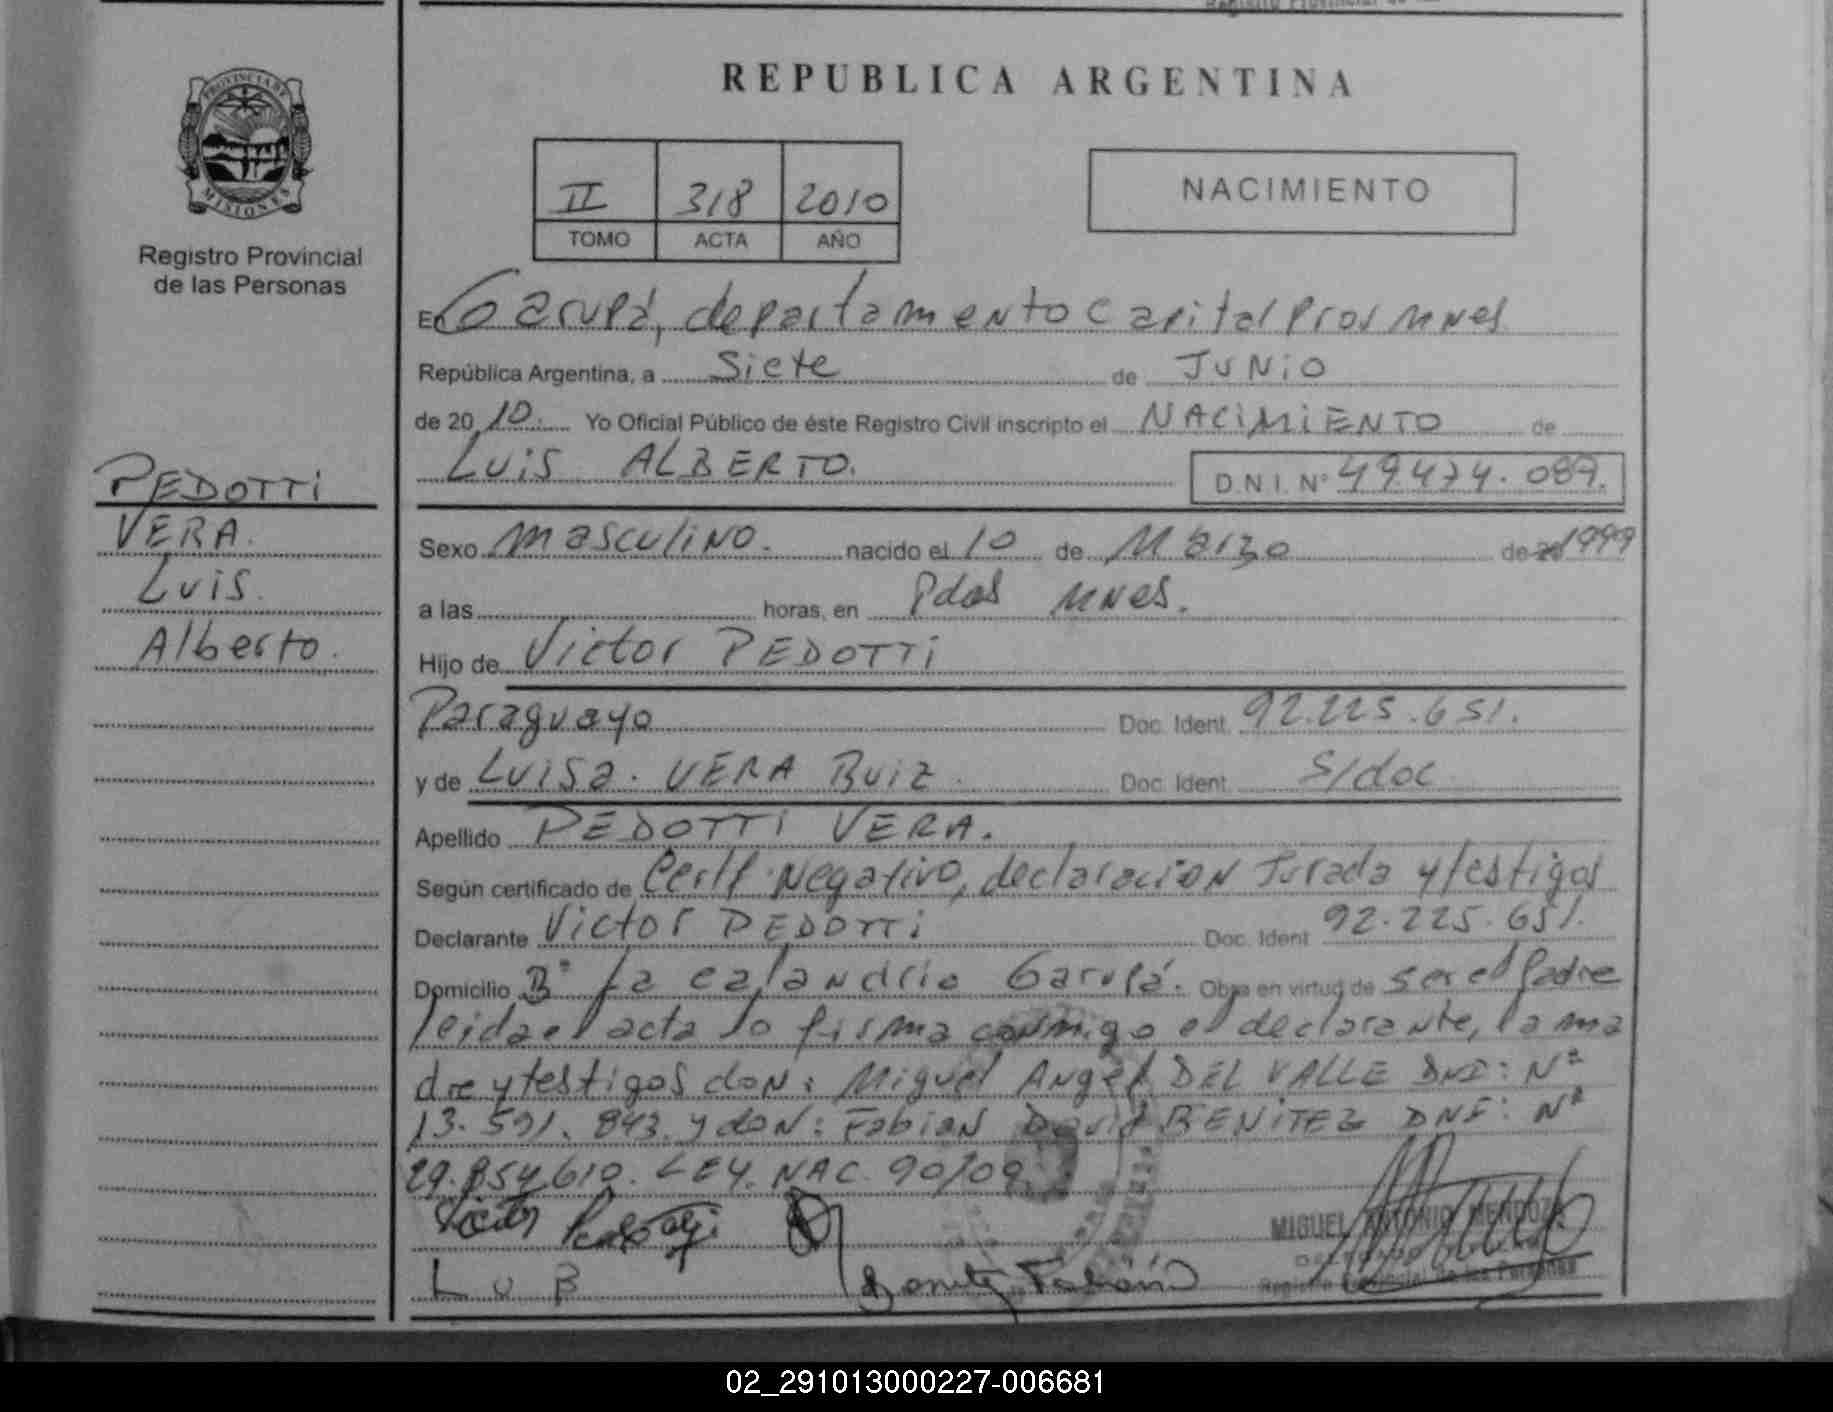 PROVINCIA DE
MISIONES
Registro Provincial
de las Personas
PEDOTTI
VERA.
Luis.
Alberto.
REPUBLICA ARGENTINA
II 318 2010
TOMO ACTA AÑO
NACIMIENTO
En Garupá, departamento Capital Prov Mnes
República Argentina, a Siete de JUNIO
de 20 10. Yo Oficial Público de éste Registro Civil inscripto el NACIMIENTO de
LUIS ALBERTO. D.N.I. Nº 49.474.087.
Sexo masculino. nacido el 10 de Marzo de 1999
a las horas, en Pdas Mnes.
Hijo de Victor PEDOTTI
Paraguayo Doc. Ident. 92.225.651.
y de Luisa. VERA RUIZ. Doc. Ident. S/doc
Apellido PEDOTTI VERA.
Según certificado de Certf. Negativo, declaración Jurada y testigos
Declarante Victor PEDOTTI Doc. Ident. 92.225.651.
Domicilio Bº La calandria Garupá. Obra en virtud de ser el Padre
leida el acta lo firma conmigo el declarante, la ma
dre y testigos don: Miguel Angel DEL VALLE DNI: Nº
13.591.843. y don: Fabian David BENITEZ DNI: Nº
29.854.610. LEY. NAC. 90/09.
Victor
L u B
Benitez Fabián D
MIGUEL ANTONIO MENDOZA
Registro Provincial de las Personas
02_291013000227-006681